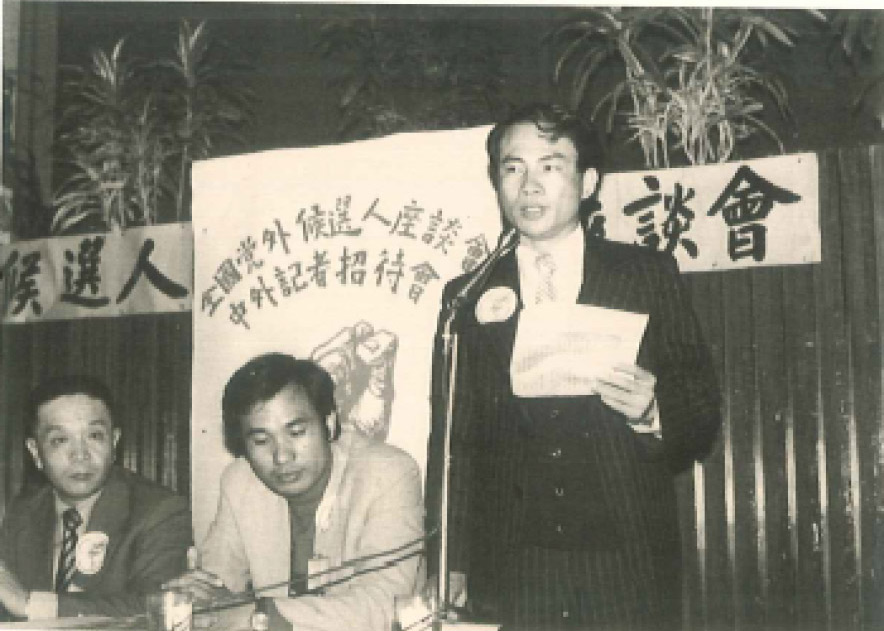 候選人
全國党外候選人座談會
中外記者招待會
談會